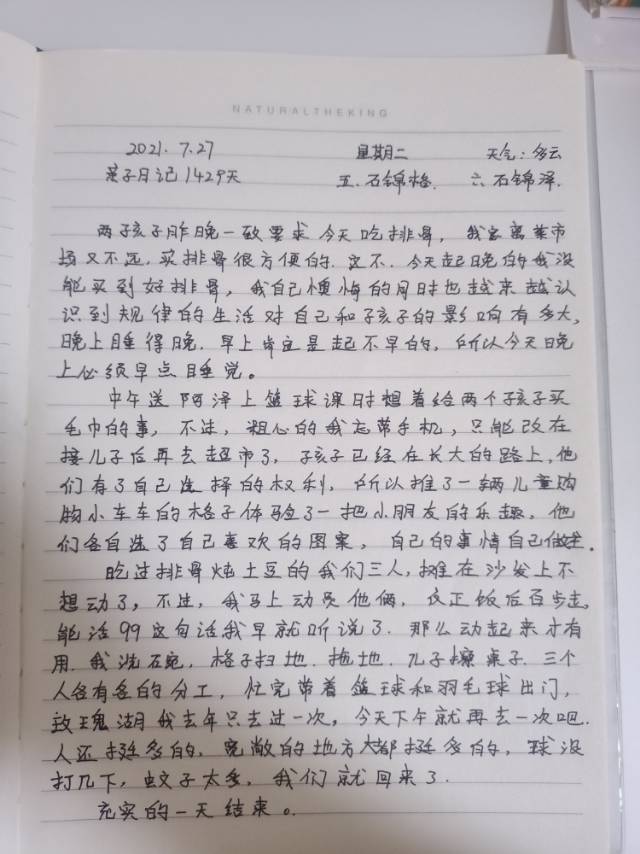 NATURALTHEKING
2021.7.27 星期二 天气:多云
亲子日记1429天 五.石锦格. 六.石锦泽.
两子孩子昨晚一致要求今天吃排骨,我家离菜市
场又不远,买排骨很方便的.这不.今天起晚的我没
能买到好排骨,我自己懊悔的同时也越来越认
识到规律的生活对自己和子孩子的影响有多大,
晚上睡得晚.早上肯定是起不早的,所以今天晚
上必须早点睡觉。
中午送阿泽上篮球课时想着给两个子孩子买
毛巾的事,不过,粗心的我忘带手机,只能改在
接儿子后再去超市了,子孩子已经在长大的路上,他
们有了自己选择的权利,所以推了一辆儿童购
物小车车的格子体验了一把小朋友的乐趣,他
们各自选了自己喜欢的图案,自己的事情自己做主.
吃过排骨炖土豆的我们三人,摊在沙发上不
想动了,不过,我马上动员他俩,反正饭后百步走,
能活99这句话我早就听说了.那么动起来才有
用.我洗碗,格子扫地.拖地.儿子擦桌子.三个
人各有各的分工,忙完带着篮球和羽毛球出门,
玫瑰湖我去年只去过一次,今天下午就再去一次吧.
人还挺多的,宽敞的地方大都挺多的,球没
打几下,蚊子太多,我们就回来了.
充实的一天结束。